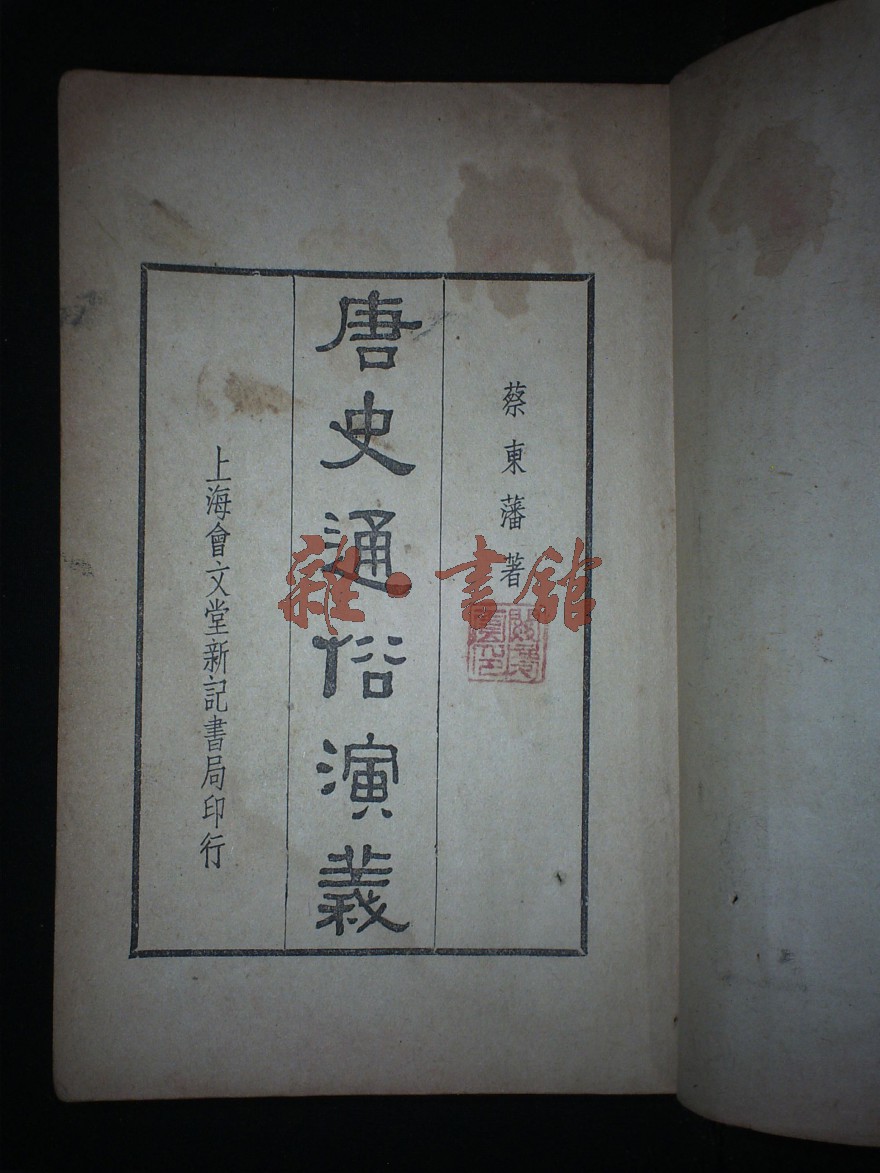 蔡東藩著
唐史通俗演義
上海會文堂新記書局印行
雜·書館